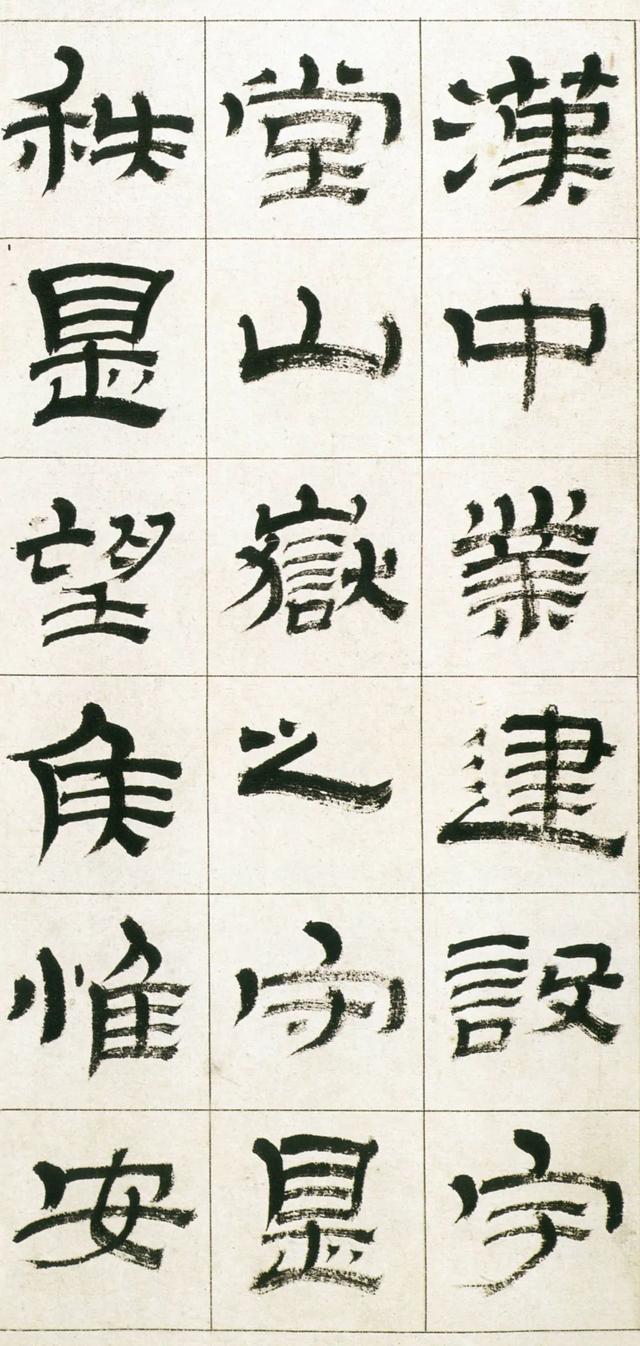 漢中業建設宇
堂山嶽之守是
秩是望侯惟安